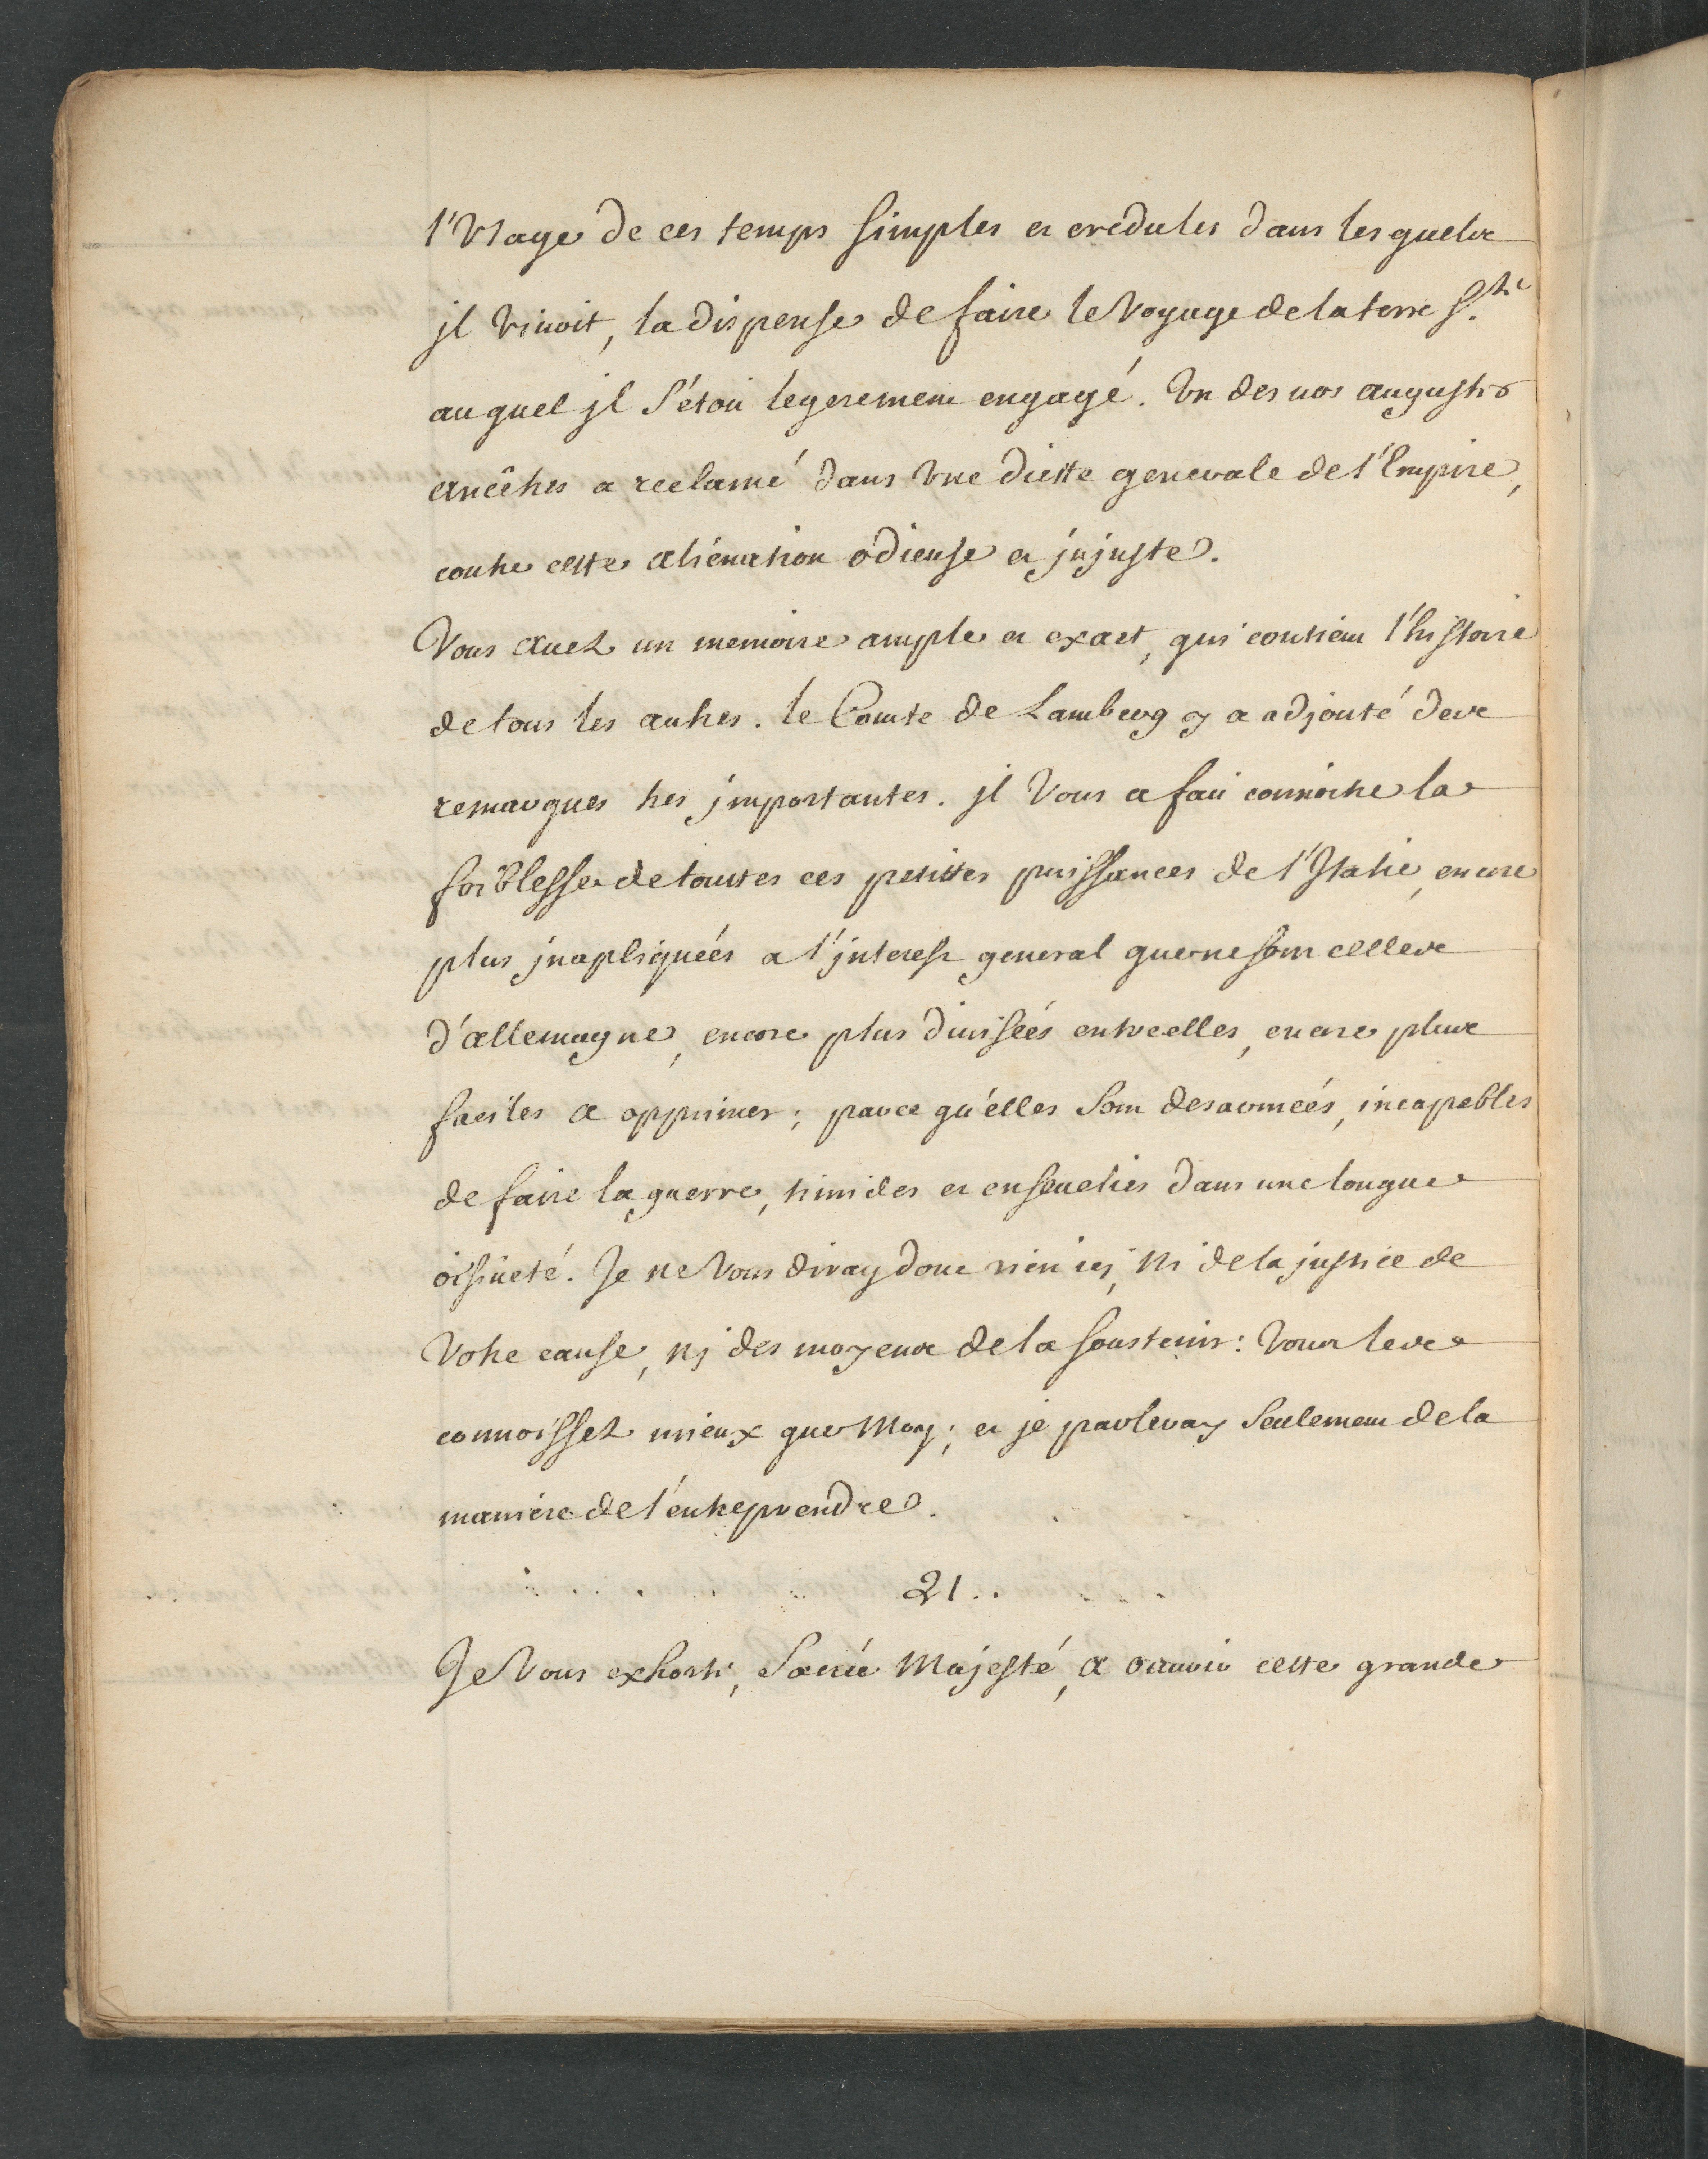 l'Vsage de ces temps simples et credules dans lesquels
jl viuoit, la dispense de faire le Voyage de la terre S.te
auquel jl s'étoit legerement engagé. Vn des nos augustes
ancêtres a reclamé dans Vne diette generale de l'Empire,
contre cette aliénation odieuse et jnjuste.
Vous auez un memoire ample et exact, qui contient l'histoire
de tous les autres. le Comte de Lamberg y a adjouté des
remarques tres jmportantes. jl Vous a fait connoitre la
foiblesse de touttes ces petittes puissances de l'Jtalie, encore
plus jnapliquées a l'jnterest general que ne sont celles
d'allemagne, encore plus diuisées entre elles, encore plus
faciles a opprimer; parce qu'elles sont desarmées, incapables
de faire la guerre, timides et enseuelies dans une longue
oisiueté. Je ne Vous diray donc rien icy, ni de la justice de
Votre cause, nj des moyens de la soustenir: Vous les
connoissez mieux que Moy; et je parleray seulement de la
maniere de l'entreprendre.
21..
Je Vous exhorte, Sacrée Majesté, a ouurir cette grande